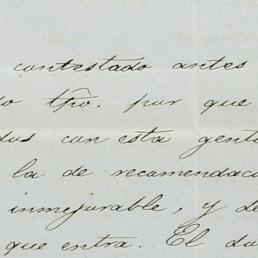 contestado antes
do tpo. por que
dos con esta gente
la de recomendac
inmejorable, y de
que entra. El do